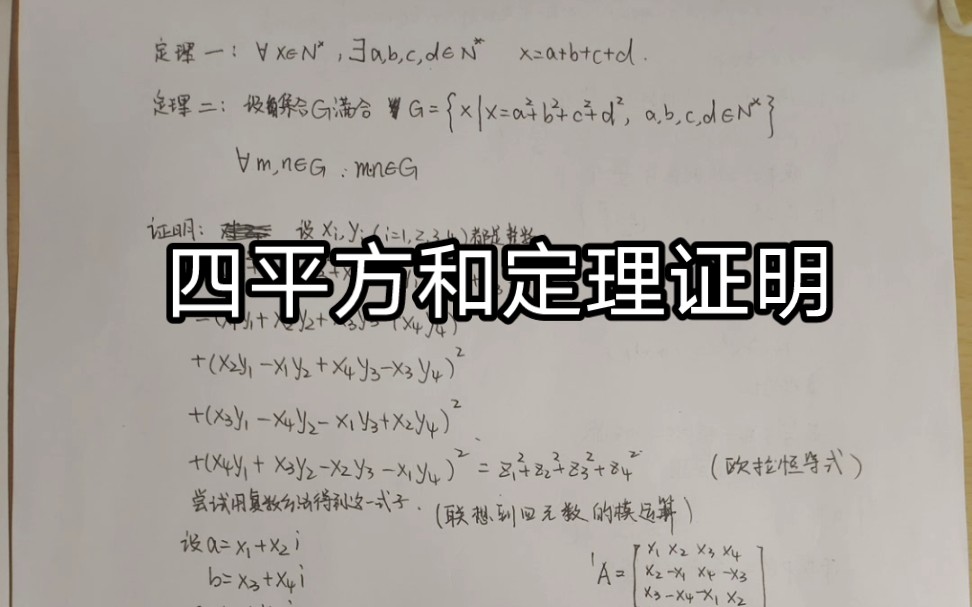 定理一: ∀x∈N*, ∃a,b,c,d∈N* x=a+b+c+d.
定理二: 设集合G满合 G={x|x=a²+b²+c²+d², a,b,c,d∈N*}
∀m,n∈G : mn∈G
证明: 设xi,yi(i=1,2,3,4)都是整数
四平方和定理证明
+(x2y1-x1y2+x4y3-x3y4)²
+(x3y1-x4y2-x1y3+x2y4)²
+(x4y1+x3y2-x2y3-x1y4)²=z1²+z2²+z3²+z4² (欧拉恒等式)
尝试用复数方法得到这一式子. (联想到四元数的模运算)
设a=x1+x2i
b=x3+x4i
A=[x1 x2 x3 x4
x2 -x1 x4 -x3
x3 -x4 -x1 x2